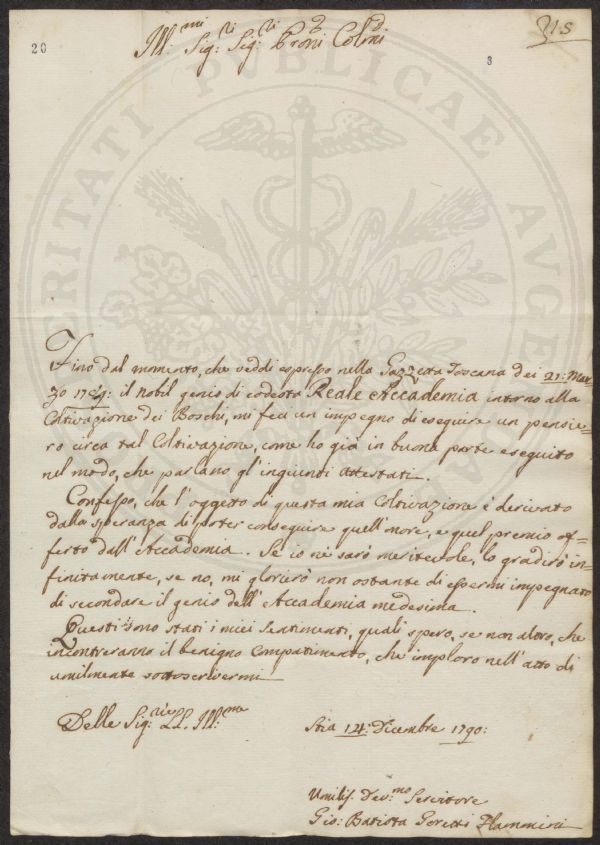 20
3
315
Ill:mi Sig:ri Sig:ri Proni Colmi
Fino dal momento, che veddi espresso nella Gazzetta Toscana dei 21: Mar
zo 1789: il nobil genio di codesta Reale Accademia intorno alla
Coltivazione dei Boschi, mi feci un impegno di eseguire un pensie=
ro circa tal Coltivazione, come ho già in buona parte eseguito
nel modo, che parlano gl'ingiunti Attestati.
Confesso, che l'oggetto di questa mia Coltivazione è derivato
dalla speranza di poter conseguire quell'onore, e quel premio of=
ferto dall'Accademia. Se io ne sarò meritevole, lo gradirò in=
finitamente, se no, mi glorierò non ostante di essermi impegnato
di secondare il genio dell'Accademia medesima.
Questi sono stati i miei sentimenti, quali spero, se non altro, che
incontreranno il benigno Compatimento, che imploro nell'atto di
umilmente sottoscrivermi
Delle Sig:rie LL. Ill:me
Stia 14: Dicembre 1790:
Umilis. Dev:mo Servitore
Gio: Batista Goretti Flammini
VERITATI PUBLICAE AUGENDAE